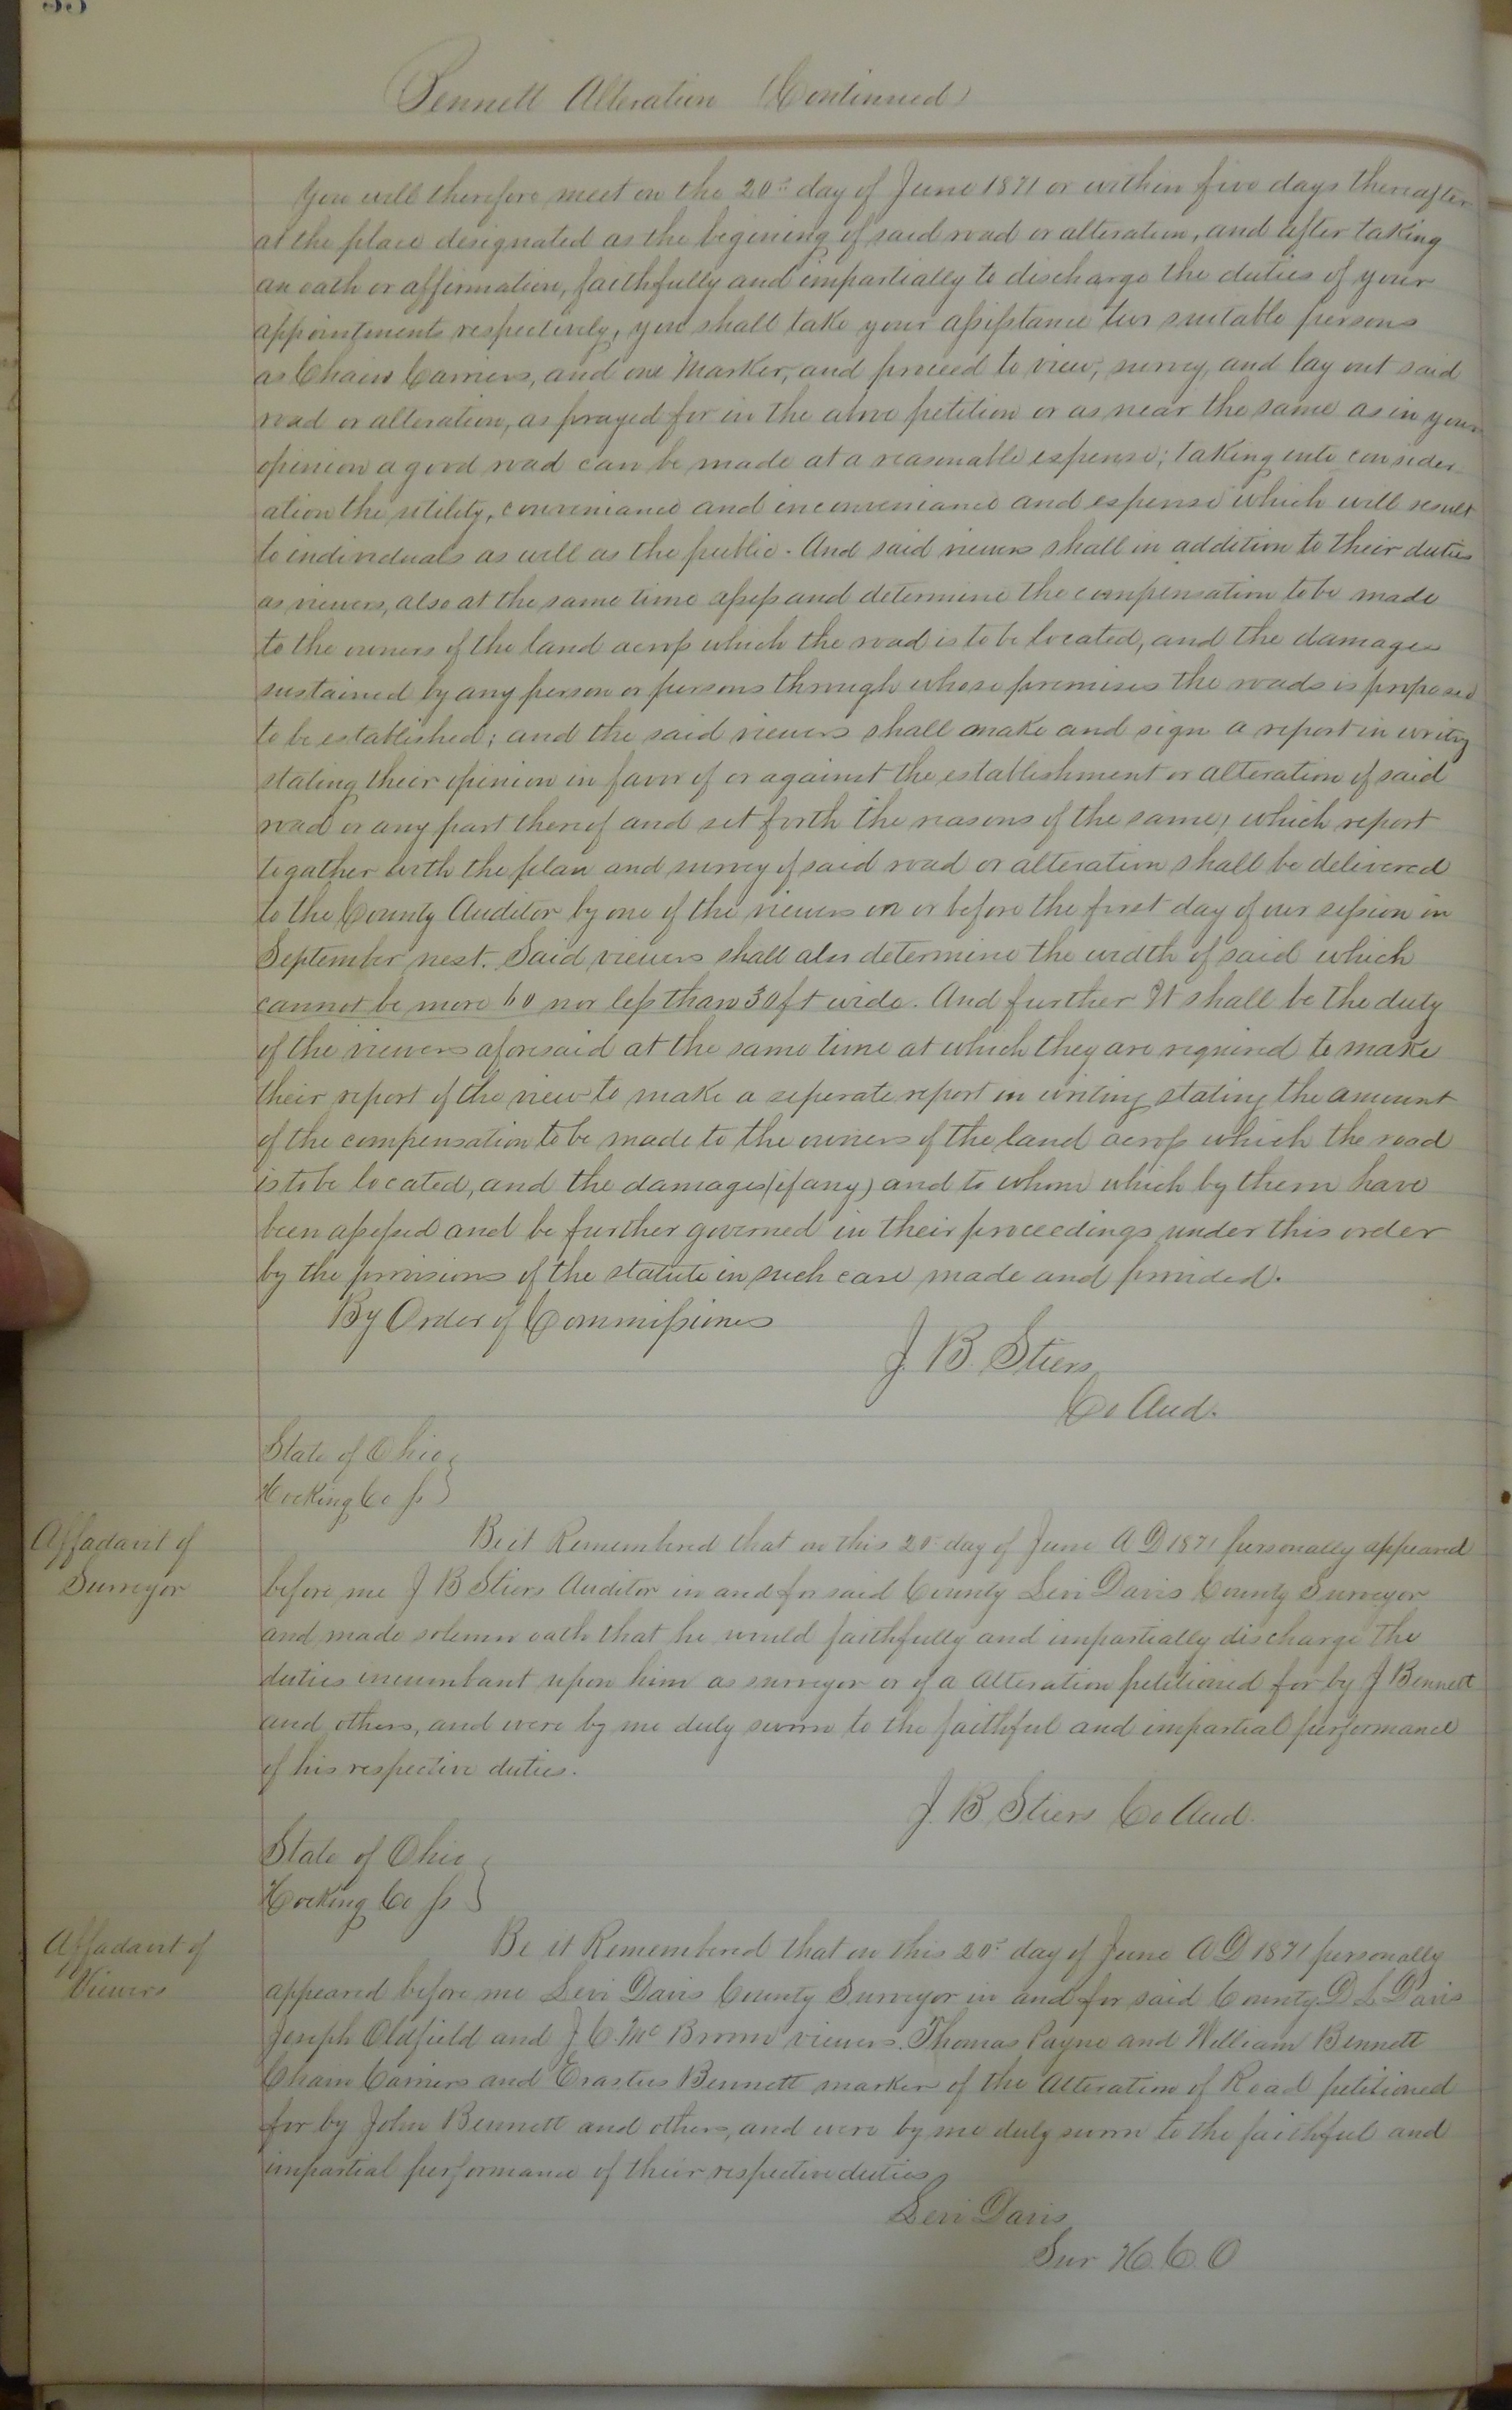 Bennett Alteration (Continued)
You will therefore meet on the 20th day of June 1871 or within five days thereafter
at the place designated as the begining of said road or alteration, and after taking
an oath or affirmation, faithfully and impartially to discharge the duties of your
appointments respectively, you shall take your assistance two suitable persons
as Chain Carriers, and one Marker, and proceed to view, survey, and lay out said
road or alteration, as prayed for in the above petition or as near the same as in your
opinion a good road can be made at a reasonable expense; taking into consider
ation the utility, conveniance and inconveniance and expense which will result
to individuals as well as the public. And said viewers shall in addition to their duties
as viewers, also at the same time assess and determine the compensation to be made
to the owners of the land across which the road is to be located, and the damages
sustained by any person or persons through whose premises the roads is proposed
to be established; and the said viewers shall make and sign a report in writing
stating their opinion in favor of or against the establishment or alteration of said
road or any part thereof and set forth the reasons of the same, which report
togather with the plan and survey of said road or alteration shall be delivered
to the County Auditor by one of the viewers on or before the first day of our session in
September next. Said viewers shall also determine the width of said which
cannot be more 60 nor less than 30 ft wide. And further It shall be the duty
of the viewers aforesaid at the same time at which they are required to make
their report of the view to make a seperate report in writing stating the amount
of the compensation to be made to the owners of the land across which the road
is to be located, and the damages (if any) and to whom which by them have
been assessed and be further governed in their proceedings under this order
by the provisions of the statute in such case made and provided.
By Order of Commissiones
J. B. Stiers
Co Aud.
State of Ohio }
Hocking Co ss }
Affadavit of
Surveyor
Be it Remembered that on this 20th day of June A D 1871 personally appeared
before me J B Stiers Auditor in and for said County Levi Davis County Surveyor
and made solemn oath that he would faithfully and impartially discharge the
duties incumbant upon him as surveyor or of a Alteration petitioned for by J Bennett
and others, and were by me duly sworn to the faithful and impartial performance
of his respective duties.
J. B. Stiers Co Aud.
State of Ohio }
Hocking Co ss }
Affadavit of
Viewers
Be it Remembered that on this 20th day of June A D 1871 personally
appeared before me Levi Davis County Surveyor in and for said County D L Davis
Joseph Oldfield and J. C. Mc Broom viewers. Thomas Payne and William Bennett
Chain Carriers and Erastus Bennett marker of the Alteration of Road petitioned
for by John Bennett and others, and were by me duly sworn to the faithful and
impartial performance of their respective duties
Levi Davis
Sur H. C. O